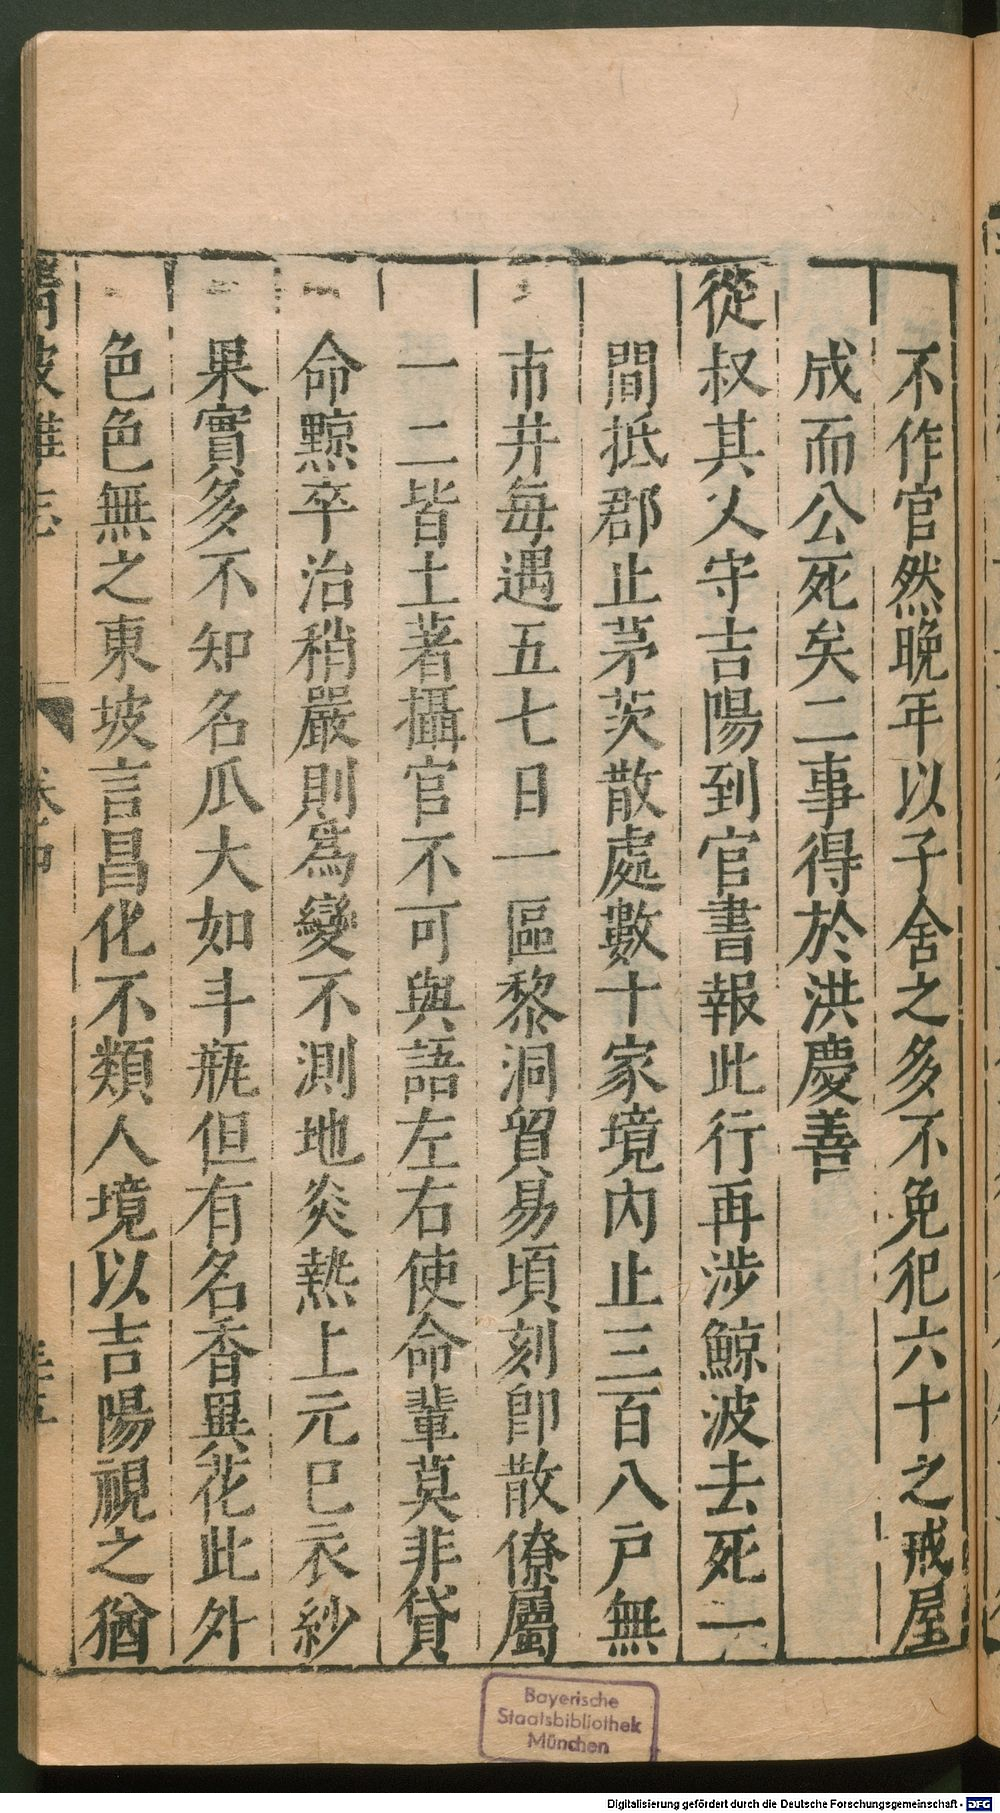 不作官然晚年以子舍之多不免犯六十之戒屋
成而公死矣二事得於洪慶善
從叔其乂守吉陽到官書報此行再涉鯨波去死一
間抵郡止茅茨散處數十家境內止三百八戶無
市井每遇五七日一區黎洞貿易頃刻卽散僚屬
一二皆土著攝官不可與語左右使命輩莫非貸
命黥卒治稍嚴則爲變不測地炎熱上元巳衣紗
果實多不知名瓜大如斗瓶但有名香異花此外
色色無之東坡言昌化不類人境以吉陽視之猶
Bayerische
Staatsbibliothek
München
Digitalisierung gefördert durch die Deutsche Forschungsgemeinschaft - DFG